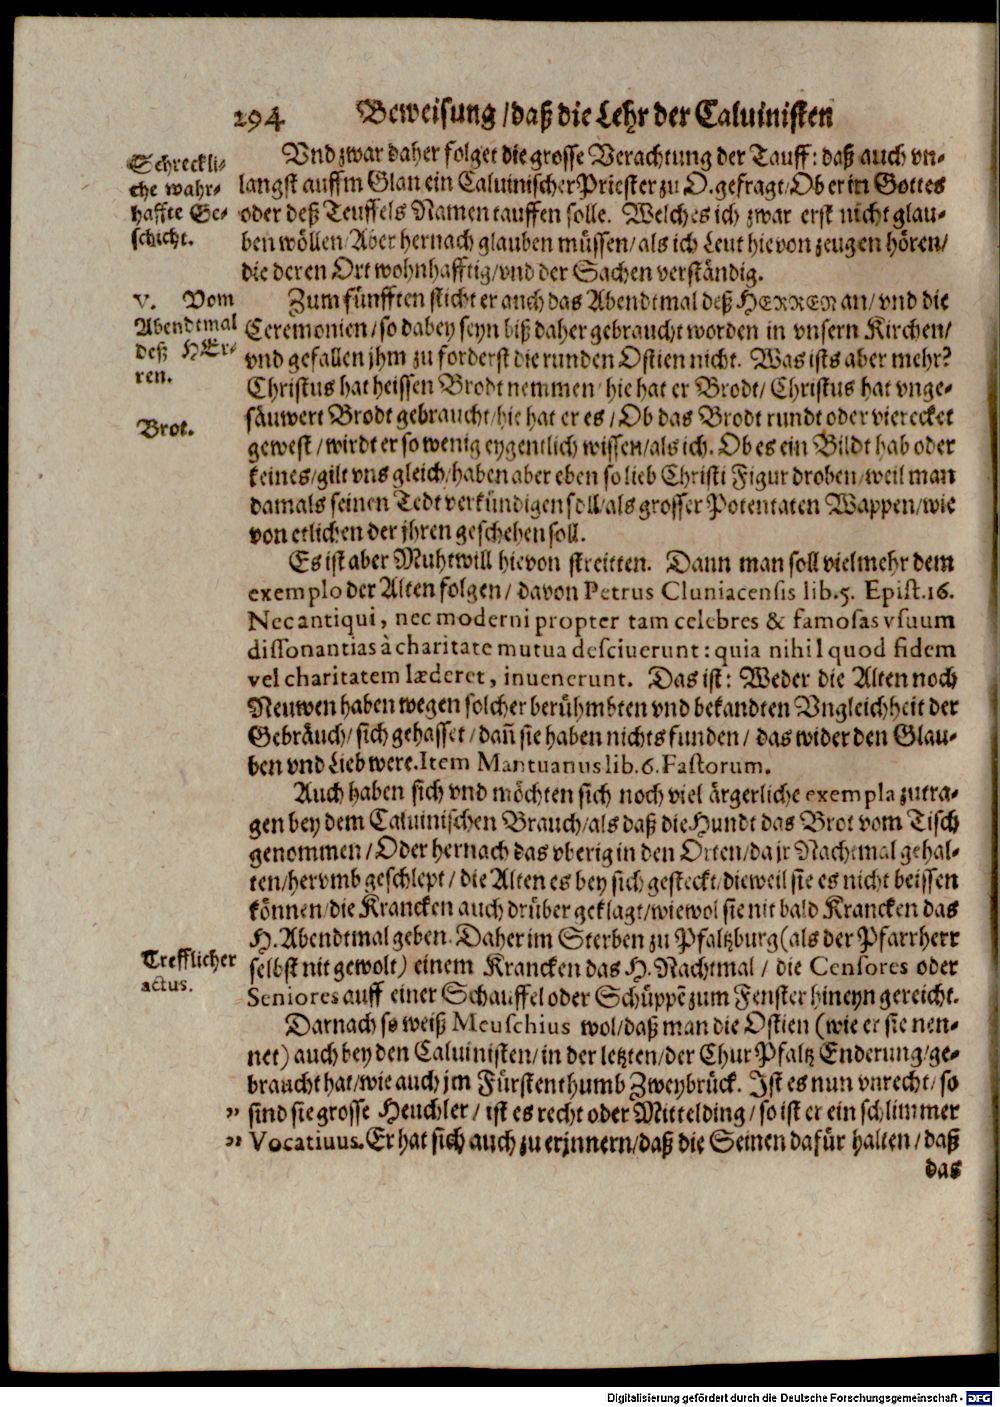 294 Beweisung / daß die Lehr der Caluinisten
Schreckli-
che wahr-
haffte Ge-
schicht.
Vnd zwar daher folget die grosse Verachtung der Tauff: daß auch vn-
langst auffm Glan ein Caluinischer Priester zu O. gefragt / Ob er in Gottes
oder deß Teuffels Namen tauffen solle. Welches ich zwar erst nicht glau-
ben wöllen / Aber hernach glauben müssen / als ich Leut hievon zeugen hören /
die deren Ort wohnhafftig / vnd der Sachen verständig.
V. Vom
Abendtmal
deß HEr-
ren.
Zum fünfften sticht er auch das Abendtmal deß HERREN an / vnd die
Ceremonien / so dabey seyn biß daher gebraucht worden in vnsern Kirchen /
vnd gefallen jhm zu forderst die runden Ostien nicht. Was ists aber mehr?
Christus hat heissen Brodt nemmen / hie hat er Brodt / Christus hat vnge-
Brot.
säuwert Brodt gebraucht / hie hat er es / Ob das Brodt rundt oder vierecket
gewest / wirdt er so wenig eygentlich wissen / als ich. Ob es ein Bildt hab oder
keines / gilt vns gleich / haben aber eben so lieb Christi Figur droben / weil man
damals seinen Todt verkündigen soll / als grosser Potentaten Wappen / wie
von etlichen der jhren geschehen soll.
Es ist aber Muhtwill hievon streitten. Dann man soll vielmehr dem
exemplo der Alten folgen / davon Petrus Cluniacensis lib. 5. Epist. 16.
Nec antiqui, nec moderni propter tam celebres & famosas vsuum
dissonantias à charitate mutua desciuerunt: quia nihil quod fidem
vel charitatem læderet, inuenerunt. Das ist: Weder die Alten noch
Neuwen haben wegen solcher berühmbten vnd bekandten Vngleichheit der
Gebräuch / sich gehasset / dañ sie haben nichts funden / das wider den Glau-
ben vnd Lieb were. Item Mantuanus lib. 6. Fastorum.
Auch haben sich vnd möchten sich noch viel ärgerliche exempla zutra-
gen bey dem Caluinischen Brauch / als daß die Hundt das Brot vom Tisch
genommen / Oder hernach das vberig in den Orten / da jr Nachtmal gehal-
ten / hervmb geschlept / die Alten es bey sich gesteckt / dieweil sie es nicht beissen
können / die Krancken auch drüber geklagt / wiewol sie nit bald Krancken das
H. Abendtmal geben. Daher im Sterben zu Pfaltzburg (als der Pfarrherr
Trefflicher
actus.
selbst nit gewolt) einem Krancken das H. Nachtmal / die Censores oder
Seniores auff einer Schauffel oder Schüppẽ zum Fenster hineyn gereicht.
Darnach so weiß Meuschius wol / daß man die Ostien (wie er sie nen-
net) auch bey den Caluinisten / in der letzten / der Chur Pfaltz Enderung / ge-
braucht hat / wie auch jm Fürstenthumb Zweybrück. Ist es nun vnrecht / so
„ sind sie grosse Heuchler / ist es recht oder Mittelding / so ist er ein schlimmer
„ Vocatiuus. Er hat sich auch zu erjnnern / daß die Seinen dafür halten / daß
das
Digitalisierung gefördert durch die Deutsche Forschungsgemeinschaft - DFG